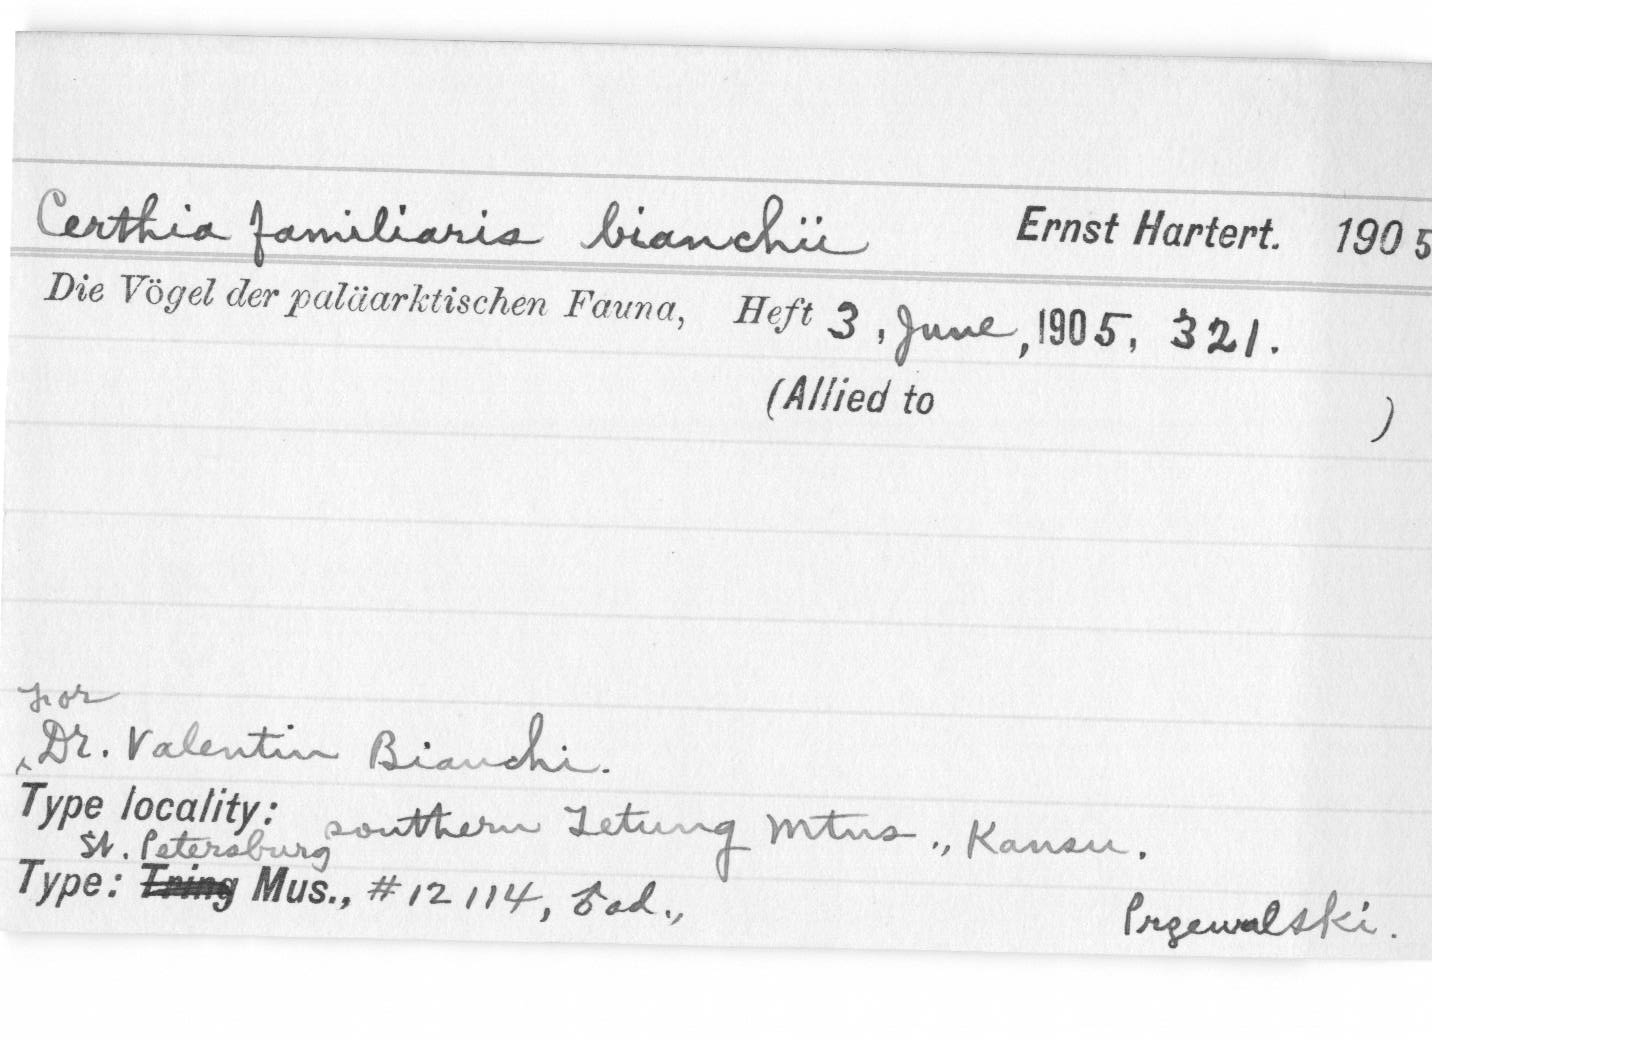 Certhia familiaris bianchii Ernst Hartert. 1905
Die Vögel der paläarktischen Fauna, Heft 3, June, 1905, 321.
(Allied to )
for
Dr. Valentin Bianchi.
Type locality: southern Tetung Mtns., Kansu.
St. Petersburg
Type: Tring Mus., #12114, ♂ ad., Przewalski.